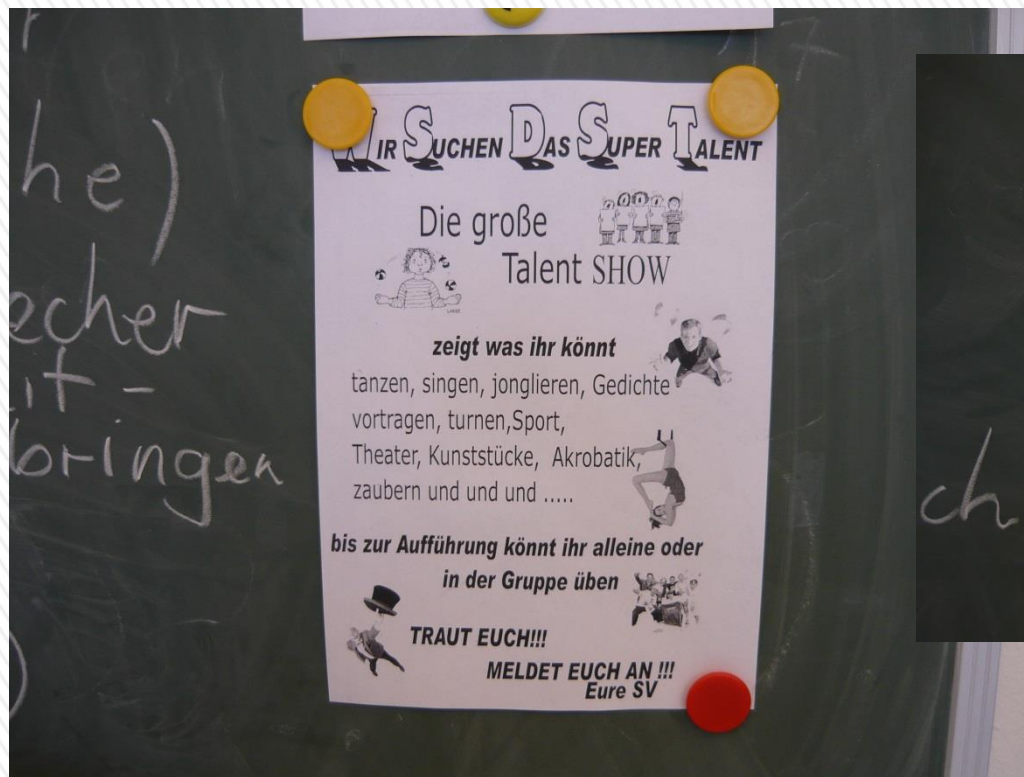 he)
echer
it-
bringen
WIR SUCHEN DAS SUPER TALENT
Die große
Talent SHOW
zeigt was ihr könnt
tanzen, singen, jonglieren, Gedichte
vortragen, turnen,Sport,
Theater, Kunststücke, Akrobatik,
zaubern und und und .....
bis zur Aufführung könnt ihr alleine oder
in der Gruppe üben
TRAUT EUCH!!!
MELDET EUCH AN !!!
Eure SV
ch